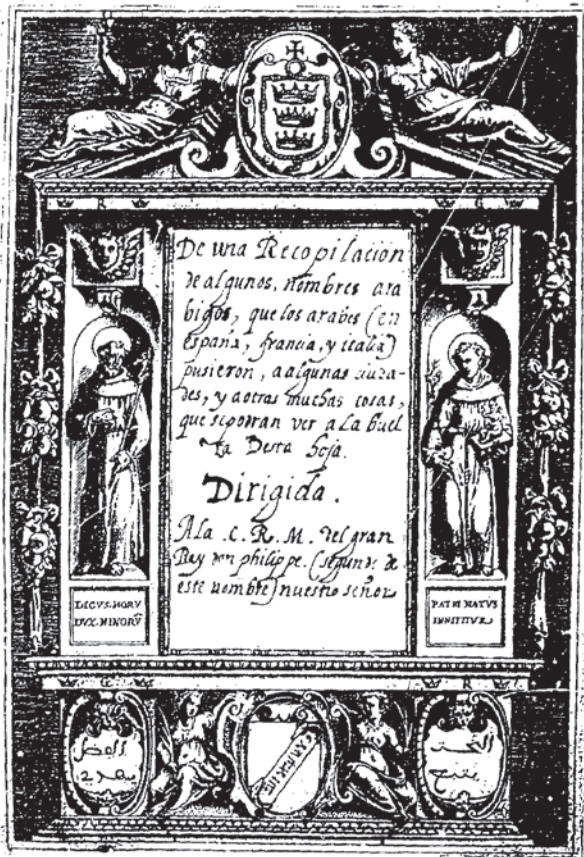 R
G
De una Recopilacion
de algunos, nombres ara
bigos, que los arabes (en
españa, francia, y italia)
pusieron, a algunas ciuda-
des, y a otras muchas cosas,
que se podran ver a la buel
ta Desta hoja.
Dirigida.
A la .C. R. M. del gran
Rey don philippe. (segundo de
este nombre) nuestro señor
DICVS. MORV
DVX. MINORV̄
PATRI NATVS
INNITITVR
G
R